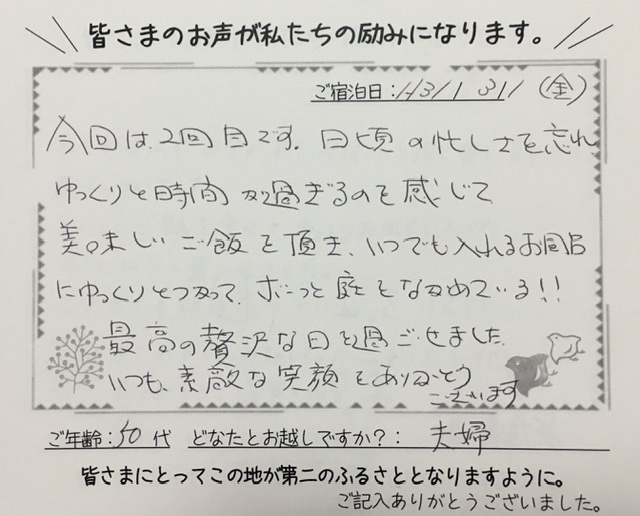 皆さまのお声が私たちの励みになります。
ご宿泊日:H31 1 31 (金)
今回は、2回目です。日頃の忙しさを忘れ
ゆっくりと時間が過ぎるのを感じて
美味しいご飯を頂き、いつでも入れるお風呂
にゆっくりとつかって、ボーっと庭をながめている!!
最高の贅沢な日を過ごせました。
いつも、素敵な笑顔をありがとう
ございます
ご年齢:50代 どなたとお越しですか?: 夫婦
皆さまにとってこの地が第二のふるさととなりますように。
ご記入ありがとうございました。